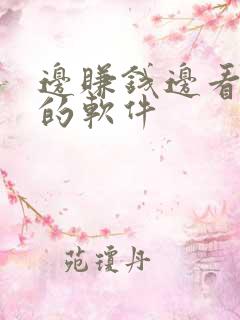 邊賺錢邊看
的軟件
苑瓊丹